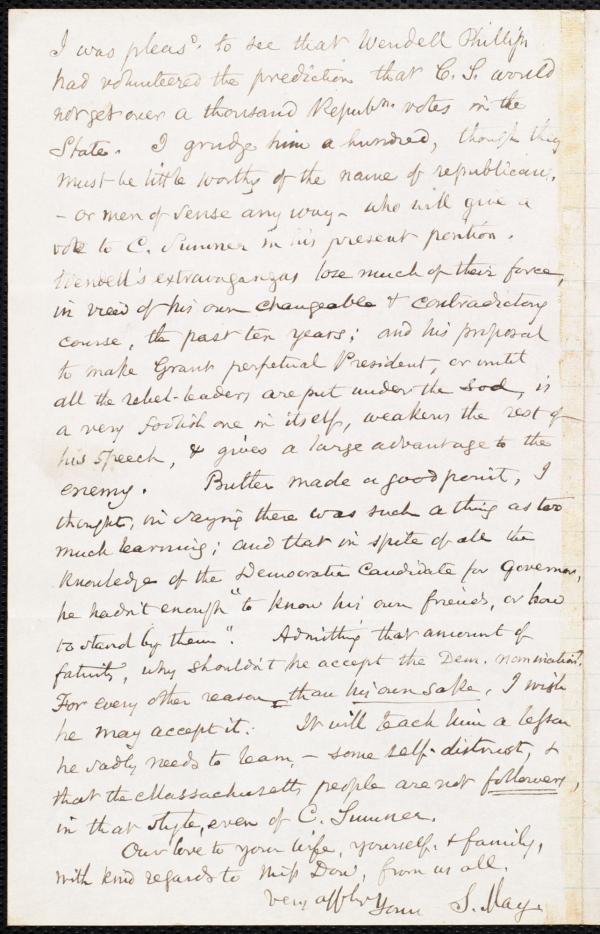 I was pleasd. to see that Wendell Phillips
had volunteered the prediction that C. S. would
not get over a thousand Republn. votes in the
State. I grudge him a hundred, though they
must be little worthy of the name of republicans,
- or men of sense any way - who will give a
vote to C. Sumner in his present position.
Wendell's extravaganzas lose much of their force,
in view of his own changeable & contradictory
course, the past ten years; and his proposal
to make Grant perpetual President, or until
all the rebel-leaders are put under the sod, is
a very foolish one in itself, weakens the rest of
his speech, & gives a large advantage to the
enemy. Butler made a good point, I
thought, in saying there was such a thing as too
much learning; and that in spite of all the
knowledge of the Democratic Candidate for Governor,
he hadn't enough "to know his own friends, or how
to stand by them". Admitting that amount of
fatuity, why shouldn't he accept the Dem. nomination?
For every other reason than his own sake, I wish
he may accept it. It will teach him a lesson
he sadly needs to learn, - some self-distrust, &
that the Massachusetts people are not followers,
in that style, even of C. Sumner.
Our love to your wife, yourself & family,
with kind regards to Miss Dow, from us all.
very affly Yours S. May.